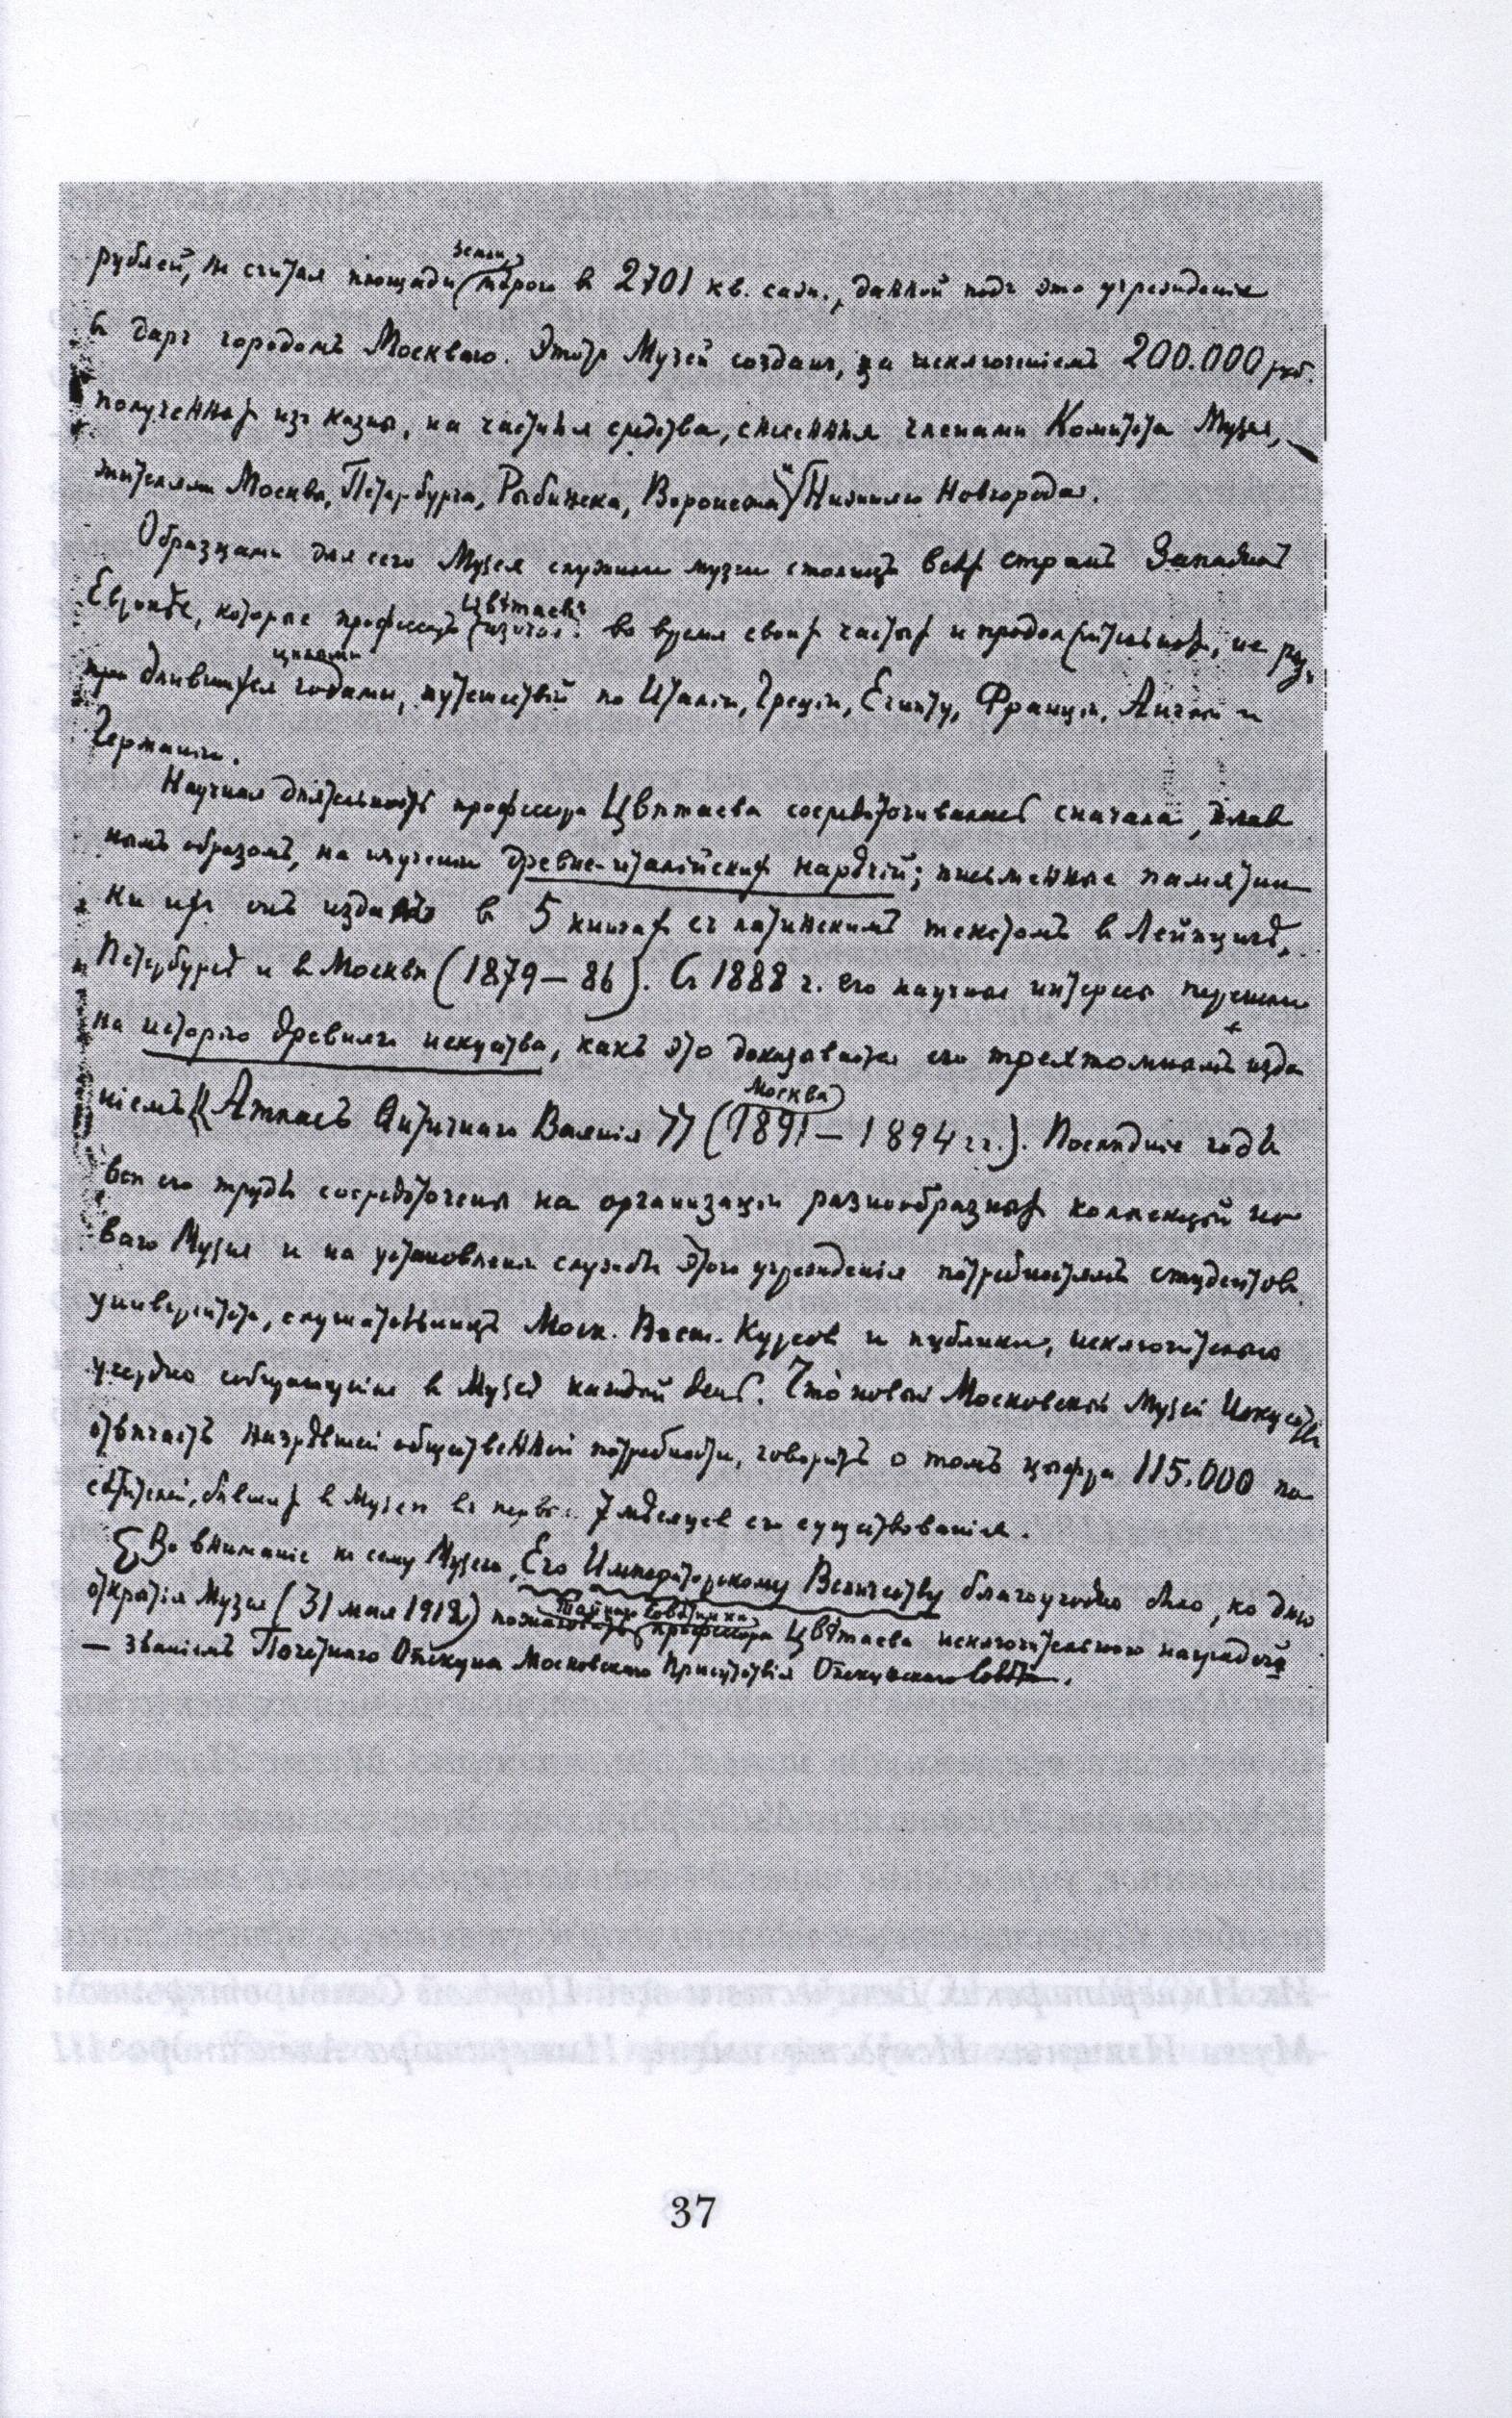 рублей, не считая площади земли, мѣрою въ 2701 кв. саж., данной подъ это учрежденіе
въ даръ городомъ Москвою. Этотъ Музей созданъ, за исключеніемъ 200.000 руб.
полученныхъ изъ казны, на частныя средства, снесенныя членами Комитета Музея, —
жителями Москвы, Петербурга, Рыбинска, Воронежа и Нижняго Новгорода.
Образцами для сего Музея служили музеи столицъ всѣхъ странъ Западной
Европы, которые профессоръ Цвѣтаевъ изучалъ во время своихъ частыхъ и продолжительныхъ, не раз.
при длившихся цѣлыми годами, путешествій по Италіи, Греціи, Египту, Франціи, Англіи и
Германіи.
Научная дѣятельность профессора Цвѣтаева сосредоточивалась сначала, глав
нымъ образомъ, на изученіи древне-италійскихъ нарѣчій; письменные памятни
ки ихъ онъ издалъ въ 5 книгахъ съ латинскимъ текстомъ въ Лейпцигѣ,
Петербургѣ и въ Москвѣ (1879–86). Съ 1888 г. его научные интересы перешли
на исторію древняго искусства, какъ это доказывается его трехтомнымъ изда
ніемъ „Атласъ Античнаго Ваянія" (Москва 1891–1894 гг.). Послѣдніе годы
всѣ его труды сосредоточены на организаціи разнообразныхъ коллекцій но
ваго Музея и на установленіи службы этого учрежденія потребностямъ студентовъ
университета, слушательницъ Моск. Высш. Курсовъ и публики, исключительно
усердно собирающейся въ Музей каждый день. Что новый Московскій Музей Искусствъ
отвѣчаетъ назрѣвшей общественной потребности, говоритъ о томъ цыфра 115.000 по
сѣтителей, бывшихъ въ Музеѣ въ первые 7 мѣсяцевъ его существованія.
Во вниманіе къ сему Музею, Его Императорскому Величеству благоугодно было, ко дню
открытія Музея (31 мая 1912) пожаловать Тайнаго Совѣтника профессора Цвѣтаева исключительною наградою
— званіемъ Почетнаго Опекуна Московскаго Присутствія Опекунскаго Совѣта.
37